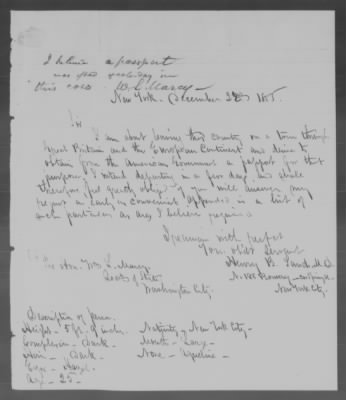 I believe a passport
was sent yesterday in
this case W. L. Marcy
New York. December 185
Sir
I am about leaving this country on a tour through
Great Britain and the European Continent and desire to
obtain from the American Government a passport for that
purpose. I intend departing in a few days and shall
therefore feel greatly obliged if you will answer my
request as early as convenient. Appended is a list of
such particulars as are I believe required
I remain with perfect
Your obdt Servant
Henry B. Sand M.D.
Bowery
New York City.
Hon. Wm L. Marcy
Secy of State
Washington City.
Description of person.
Height - 5 ft. 9 inches. Nativity - New York City -
Complexion - Dark - Mouth - Large -
Hair - Dark - Nose - Aquiline -
Eyes - Hazel
Age - 25 -